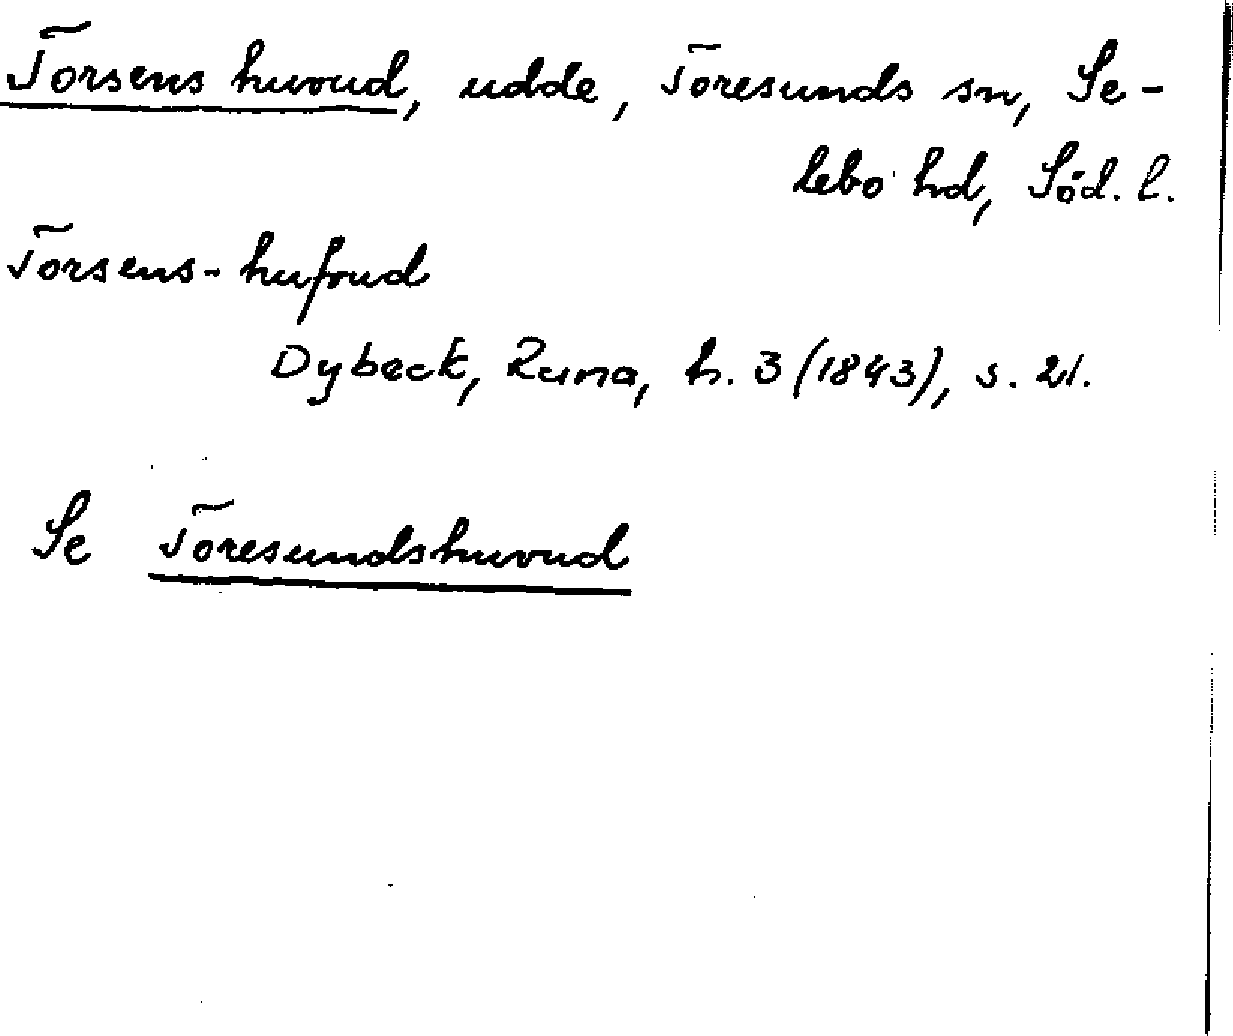 Torsens huvud, udde, Toresunds sn, Se-
lebo hd, Söd. l.
Torsens-hufvud
Dybeck, Runa, h. 3 (1843), s. 21.
Se Toresundshuvud